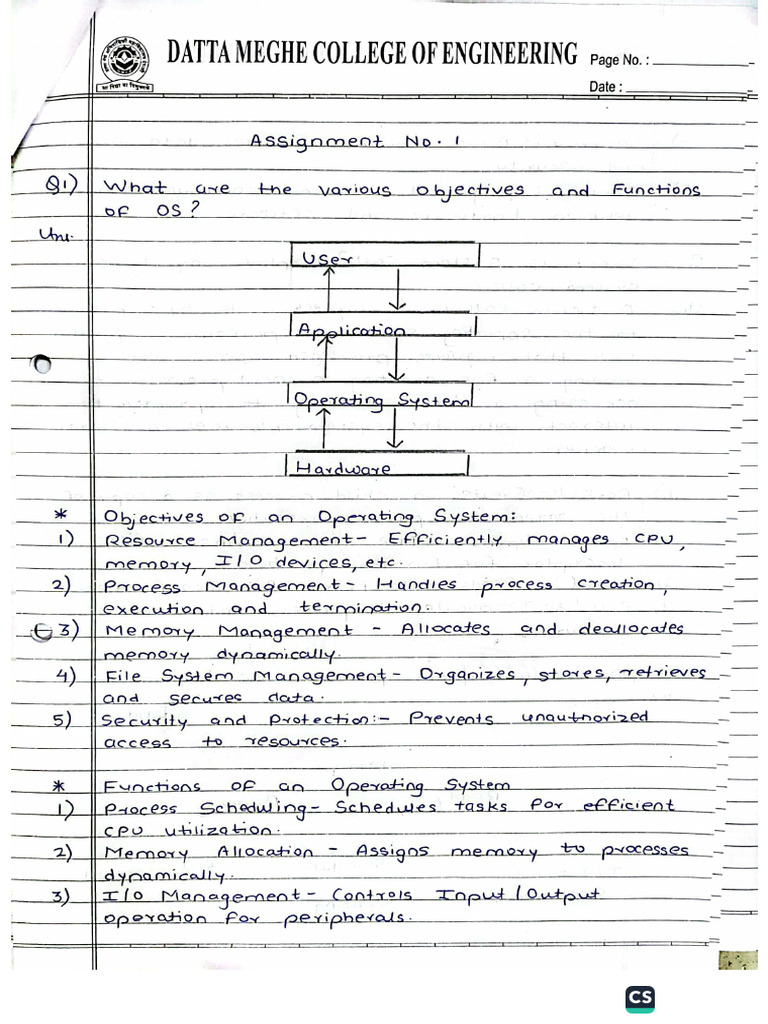 DATTA MEGHE COLLEGE OF ENGINEERING
Page No. :
Date :
Assignment No. 1
Q1) What are the various objectives and Functions
of OS?
User
Application
Operating System
Hardware
* Objectives of an Operating System:
1) Resource Management- Efficiently manages CPU,
memory, I/O devices, etc.
2) Process Management- Handles process creation,
execution and termination.
3) Memory Management - Allocates and deallocates
memory dynamically.
4) File System Management- Organizes, stores, retrieves
and secures data.
5) Security and Protection:- Prevents unauthorized
access to resources.
* Functions of an Operating System
1) Process Scheduling- Schedules tasks for efficient
CPU utilization.
2) Memory Allocation - Assigns memory to processes
dynamically.
3) I/O Management- Controls Input/Output
operation for peripherals.
CS